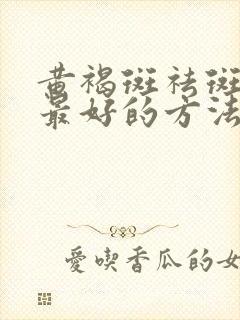 黄褐斑祛斑
最好的方法
愛喫香瓜的女